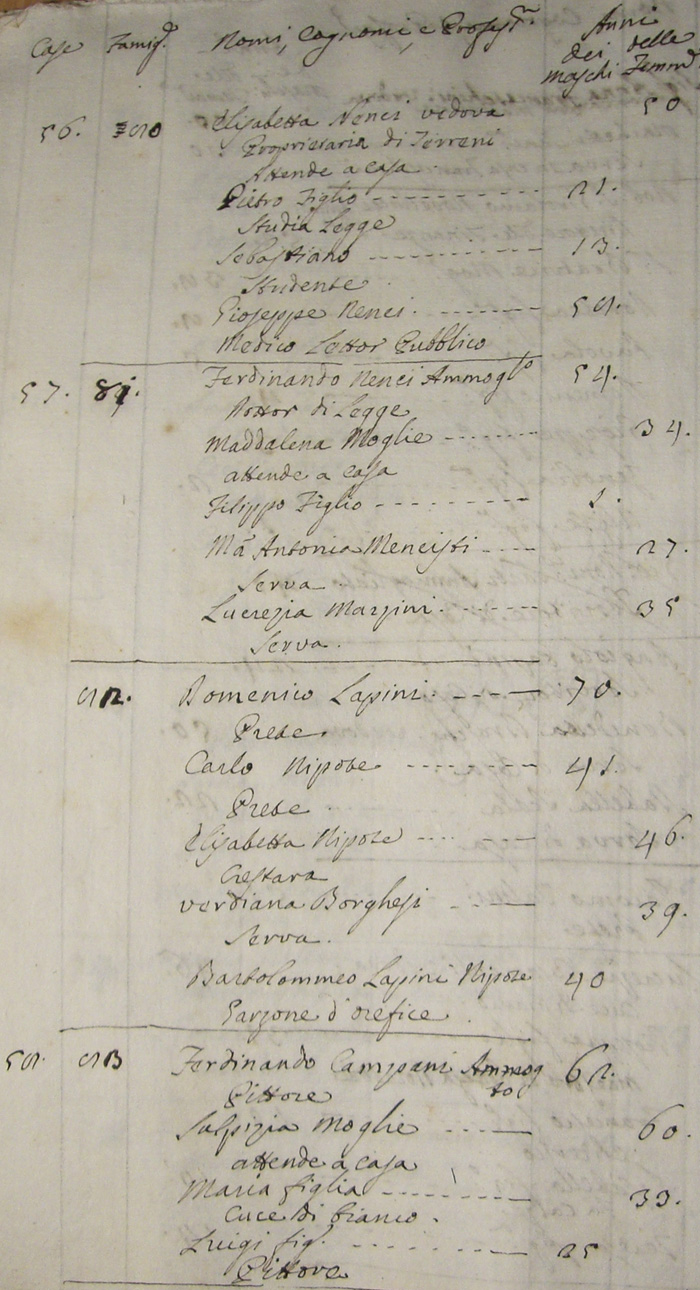 Case Famig.e Nomi, Cognomi, e Profess.ni Anni
dei maschi delle Femm.e
56. 80 Elisabetta Nenci vedova 50
Proprietaria di Terreni
Attende a casa
Pietro Figlio 21.
Studia Legge
Sebastiano 13.
Studente
Gioseppe Nenci. 58.
Medico Lettor Pubblico
57. 81. Ferdinando Nenci Ammogto 54.
Dottor di Legge
Maddalena Moglie 34.
attende a casa
Filippo Figlio 1.
Ma Antonia Mencisti 27.
Serva
Lucrezia Marzini. 35
Serva.
82. Domenico Lapini. 70.
Prete
Carlo Nipote 41.
Prete
Elisabetta Nipote 46.
Crestara
verdiana Borghesi 39.
Serva.
Bartolommeo Lapini Nipote 40
Garzone d'orefice
58. 83 Ferdinando Campani Ammogto 62.
Pittore
Sulpizia Moglie 60.
attende a casa
Maria figlia 33.
Cuce di bianco.
Luigi fig. 25
Pittore